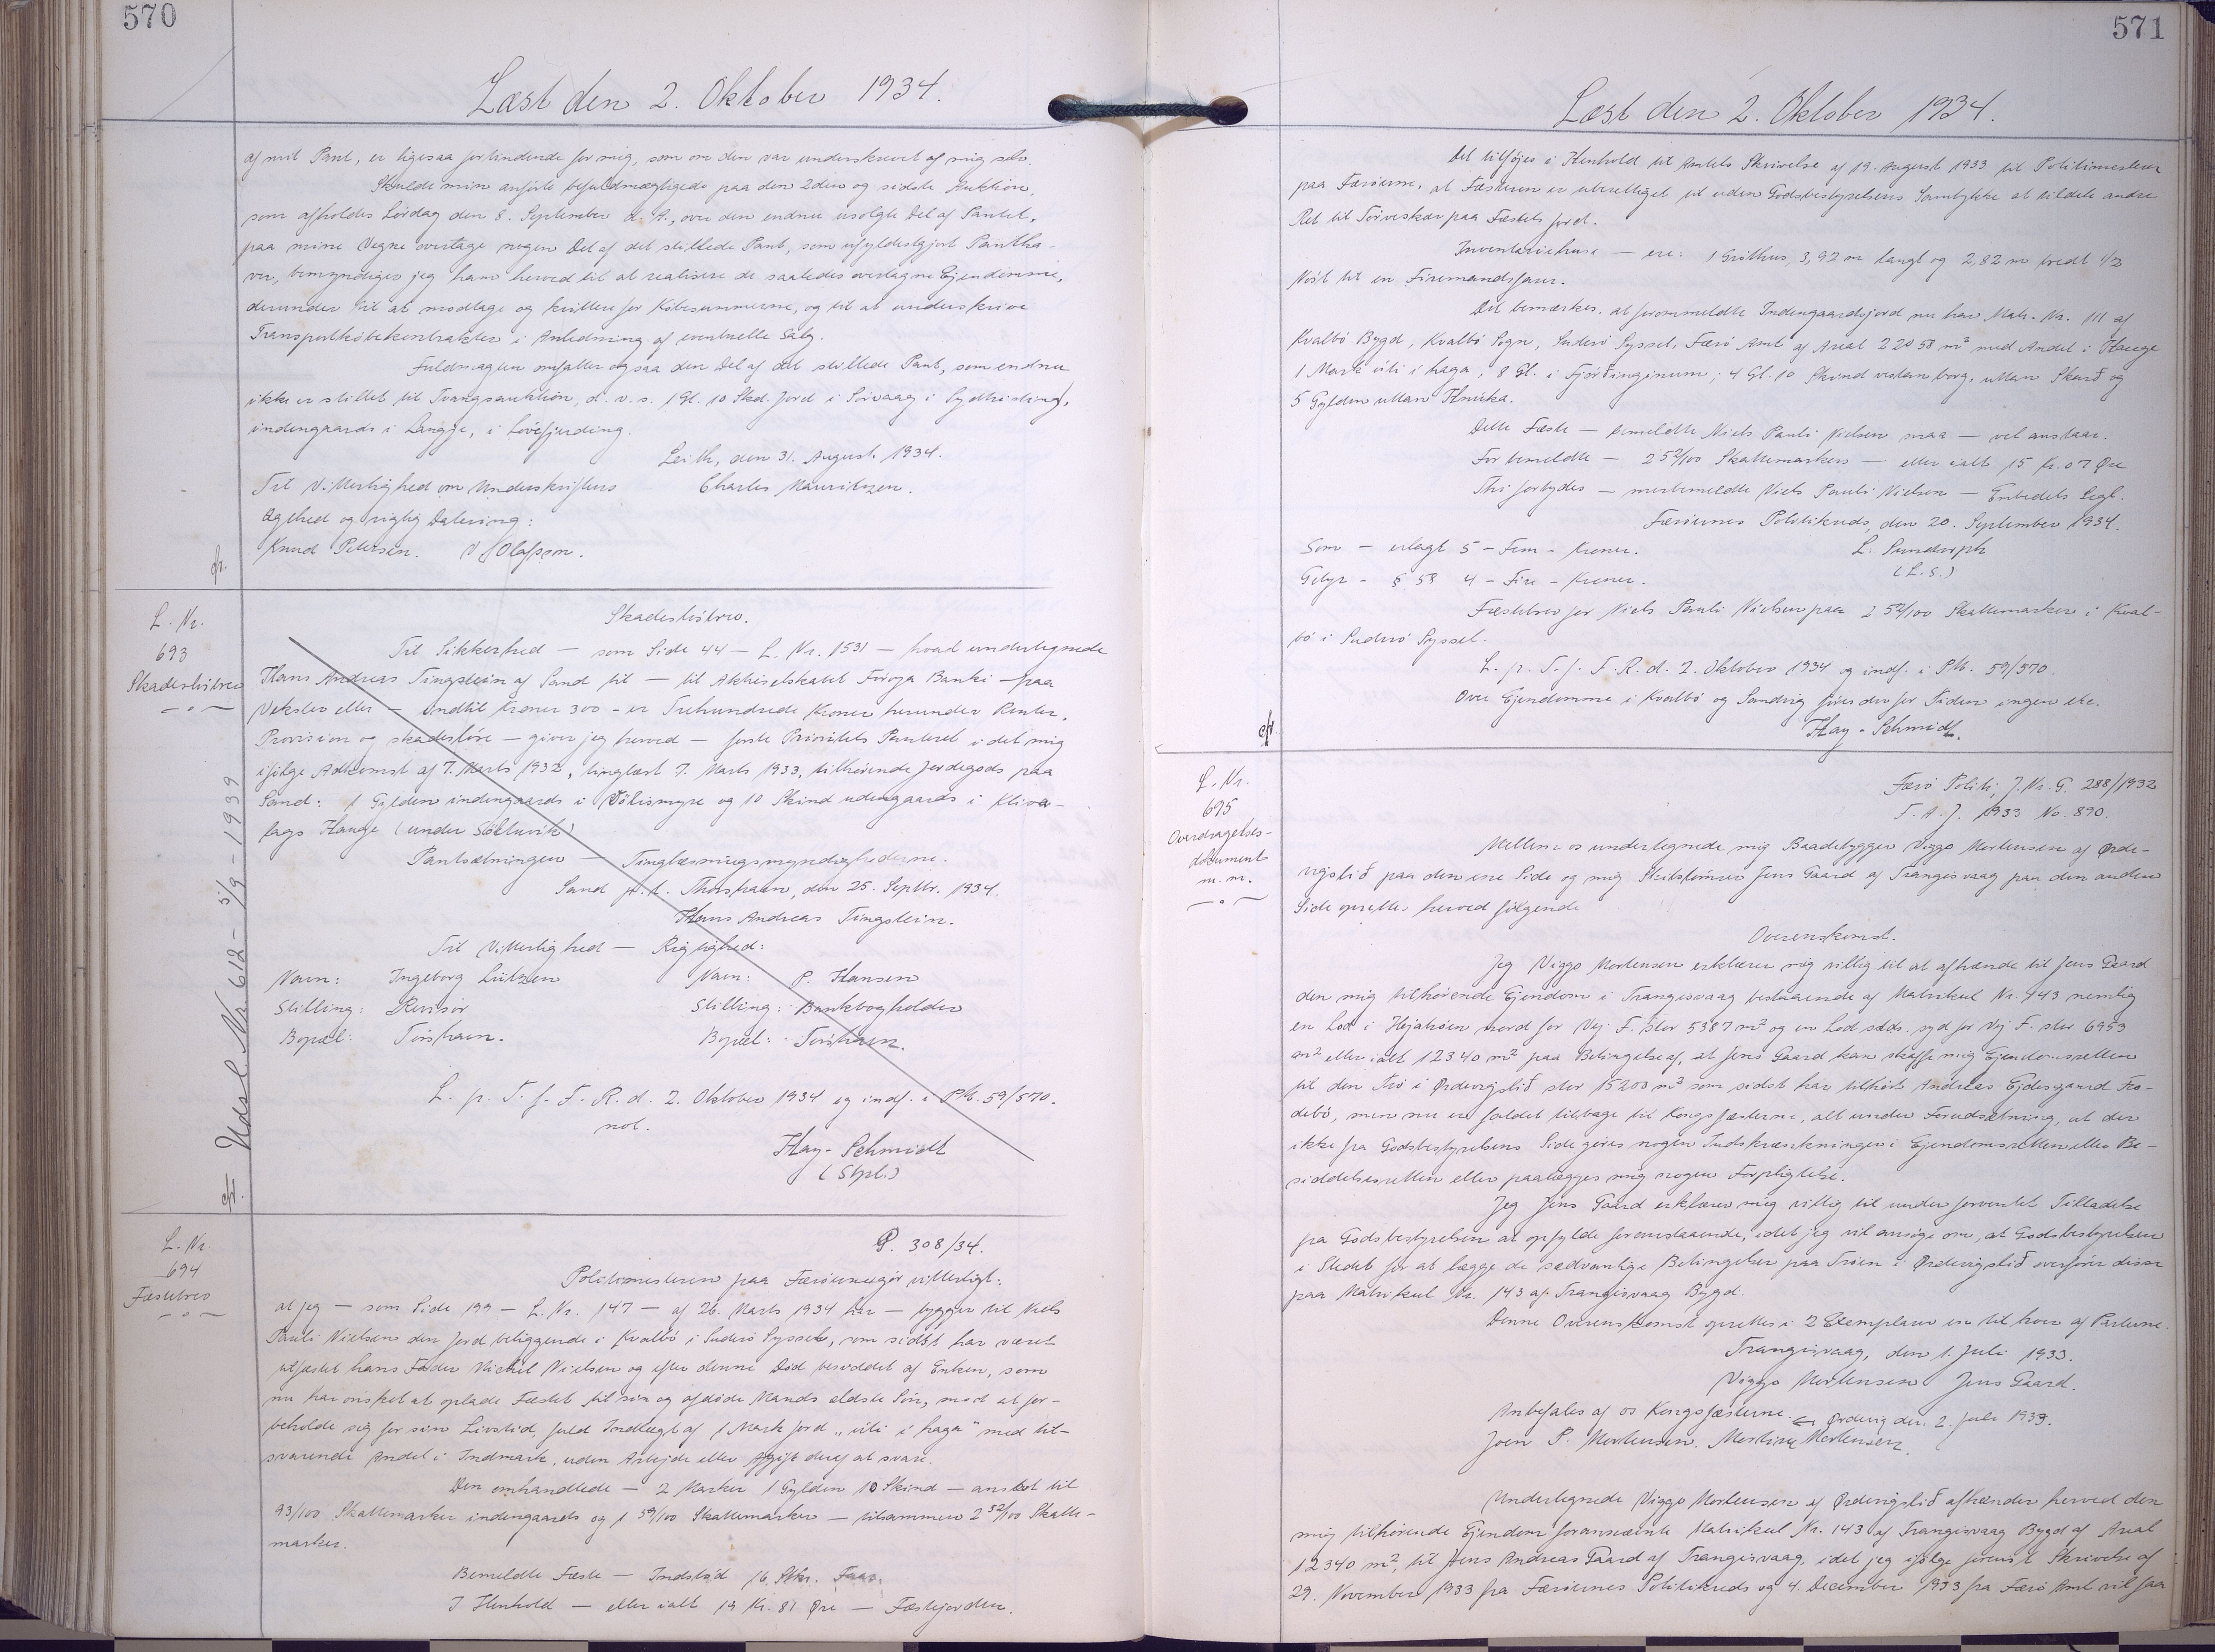 570
Læst den 2. Oktober 1934.
af mit Pant, er ligesaa forbindende for mig, som om den var underskrevet af mig selv.
Skulde min anførte befuldmægtigede paa den 2den og sidste Auktion,
som afholdes Lørdag den 8. September d. A., over den endnu usolgte Del af Pantet,
paa mine Vegne overtage nogen Del af det stillede Pant, som ufyldestgjort Pantha-
ver, bemyndiger jeg ham herved til at realisere de saaledes overtagne Ejendomme,
derunder til at modtage og kvittere for Købesummerne, og til at underskrive
Transportkøbekontrakter i Anledning af eventuelle Salg.
Fuldmagten omfatter ogsaa den Del af det stillede Pant, som endnu
ikke er stillet til Tvangsauktion, d. v. s. 1 Gl. 10 Skd. Jord i Sørvaag i
indengaards i Langgje, i Løvefjerding.
Leith, den 31. August 1934.
Til Vitterlighed om Underskriftens Charles Mauritzen.
Ægthed og rigtig Datering:
Knud Petersen. V Olafsson.
L. Nr.
693
Skadesløsbrev
Udsl. Nr. 612 - 5/9 - 1939
Skadesløsbrev.
Til Sikkerhed — som Side 44 — L. Nr. 1531 — hvad undertegnede
Hans Andreas Tingstein af Sand til — til Aktieselskabet Føroya Banki — paa
Veksler eller — indtil Kroner 300 - er Trehundrede Kroner herunder Renter,
Provision og skadesløse — giver jeg herved — første Prioritets Panteret i det mig
ifølge Adkomst af 7. Marts 1932, tinglæst 7. Marts 1933, tilhørende Jordegods paa
Sand: 1 Gylden indengaards i Vølismyre og 10 Skind udengaards i Kliva-
lags Hauge (under Søltuvík)
Pantsætningen — Tinglæsningsmyndighederne.
Sand p. t. Thorshavn, den 25. Septbr. 1934.
Hans Andreas Tingstein.
Til Vitterlighed — Rigtighed:
Navn: Ingeborg Lützen Navn: P. Hansen
Stilling: Revisor Stilling: Bankbogholder
Bopæl: Tórshavn. Bopæl: Tórshavn.
L. p. T. f. F. R. d. 2. Oktober 1934 og indf. i Ptb. 59/570.
not.
Hay-Schmidt
(Stpl.)
L. Nr.
694
Fæstebrev
P. 308/34.
Politimesteren paa Færøerne gør vitterligt:
at jeg — som Side 199 — L. Nr. 147 — af 26. Marts 1934 har — bygger til Niels
Pauli Nielsen den Jord beliggende i Kvalbø i Suderø Syssel, som sidst har været
udfæstet hans Fader Michel Nielsen og efter dennes Død besiddet af Enken, som
nu har ønsket at oplade Fæstet til sin og afdøde Mands ældste Søn, mod at for-
beholde sig for sin Livstid, fuld Indtægt af 1 Mark Jord „úti í haga" med til-
svarende Andel i Indmark, uden Arbejde eller Afgift deraf at svare.
Den omhandlede — 2 Marker 1 Gylden 10 Skind — ansat til
93/100 Skattemarker indengaards og 1 59/100 Skattemarker — tilsammen 2 52/100 Skatte-
marker.
Bemeldte Fæste — Indstød 16 Stkr. Faar.
I Henhold — eller ialt 19 Kr. 81 Øre — Fæstejorden.
571
Læst den 2. Oktober 1934.
Det tilføjes i Henhold til Amtets Skrivelse af 19. August 1933 til Politimesteren
paa Færøerne, at Fæsteren er uberettiget til uden Godsbestyrelsens Samtykke at tildele andre
Ret til Tørveskær paa Fæstets Jord.
Inventariehuse — ere: 1 Gróthus, 3,92 m langt og 2,82 m bredt 1/2
Nøst til en Firemandsfarer.
Det bemærkes, at forommeldte Indengaardsjord nu har Matr. Nr. 111 af
Kvalbø Bygd, Kvalbø Sogn, Suderø Syssel, Færø Amt af Areal 22058 m² med Andel i Hauge
1 Mark úti í haga; 8 Gl. i Fjórðinginum; 4 Gl. 10 Skind vestan borg, uttan Skarð og
5 Gylden uttan Hnúka.
Dette Fæste — bemeldte Niels Pauli Nielsen maa — vel anstaar.
For bemeldte — 2 52/100 Skattemarkers — eller ialt 15 Kr. 07 Øre
Thi forbydes — merbemeldte Niels Pauli Nielsen — Embedets Segl.
Færøernes Politikreds, den 20. September 1934.
Som — erlagt 5 - Fem - Kroner. L. Sundorph
Gebyr - § 58 4 - Fire - Kroner. (L. S.)
Fæstebrev for Niels Pauli Nielsen paa 2 52/100 Skattemarker i Kval-
bø i Suderø Syssel.
L. p. T. f. F. R. d. 2. Oktober 1934 og indf. i Ptb. 59/570.
Over Ejendomme i Kvalbø og Sandvig føres der for Tiden ingen
Hay-Schmidt.
L. Nr.
695
Overdragelses-
dokument
m. m.
Færø Politi, J. Nr. G. 288/1932
F. A. J. 1933 No. 890.
Mellem os undertegnede mig Baadebygger Viggo Mortensen af Ørde-
vigslið paa den ene Side og mig Skibstømrer Jens Gaard af Trangisvaag paa den anden
Side oprettes herved følgende
Overenskomst.
Jeg Viggo Mortensen erklærer mig villig til at afhænde til Jens Gaard
den mig tilhørende Ejendom i Trangisvaag bestaaende af Matrikul Nr. 143 nemlig
en Lod i Hejahøen nord for Vej F. stor 5387 m² og en Lod sdds. syd for Vej F. stor 6953
m² eller ialt 12340 m² paa Betingelse af, at Jens Gaard kan skaffe mig Ejendomsretten
til den Trø i Ørdevigslið stor 15203 m² som sidst har tilhørt Andreas Ejdesgaard Fro-
debø, men nu er faldet tilbage til Kongsfæsterne, alt under Forudsætning, at der
ikke fra Godsbestyrelsens Side gøres nogen Indskrænkninger i Ejendomsretten eller Be-
siddelsesretten eller paalægges mig nogen Forpligtelse.
Jeg Jens Gaard erklærer mig villig til under forventet Tilladelse
fra Godsbestyrelsen at opfylde foranstaaende, idet jeg vil ansøge om, at Godsbestyrelsen
i Stedet for at lægge de sædvanlige Betingelser paa Trøen i Ørdevigslið overfører disse
paa Matrikul Nr. 143 af Trangisvaag Bygd.
Denne Overenskomst oprettes i 2 Exemplarer en til hver af Parterne.
Trangisvaag, den 1. Juli 1933.
Viggo Mortensen Jens Gaard.
Anbefales af os Kongsfæsterne. Ørdevig den 2. Juli 1933.
Joen P. Mortensen. Mortensen.
Undertegnede Viggo Mortensen af Ørdevigslið afhænder herved den
mig tilhørende Ejendom forannævnte Matrikul Nr. 143 af Trangisvaag Bygd af Areal
12340 m², til Jens Andreas Gaard af Trangisvaag, idet jeg ifølge forevist Skrivelse af
29. November 1933 fra Færøernes Politikreds og 4. December 1933 fra Færø Amt vil faa